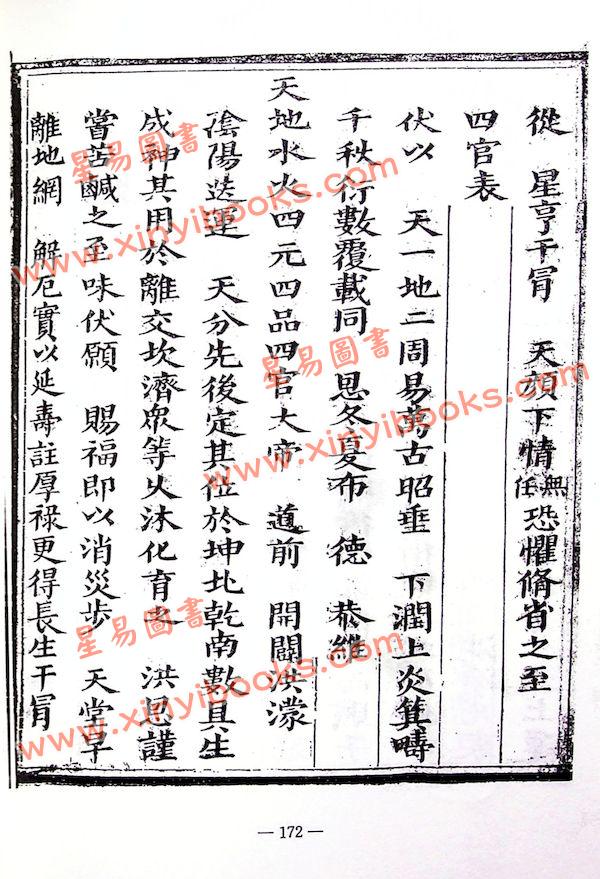 從　星亨干冐　天顔下情無任恐懼脩省之至
四官表
伏以　天一地二周易萬古昭垂　下潤上炎箕疇
千秋衍數覆載同　恩冬夏布　德　恭維
天地水火四元四品四官大帝　道前　開闢洪濛
陰陽迭運　天分先後定其位於坤北乾南數具生
成神其用於離交坎濟衆等久沐化育之　洪恩謹
嘗苦鹹之至味伏願　賜福即以消災步　天堂早
離地網　解厄實以延壽註厚祿更得長生干冐
星易圖書
www.xinyibooks.com
星易圖書
www.xinyibooks.com
星易圖書
www.xinyibooks.com
— 172 —